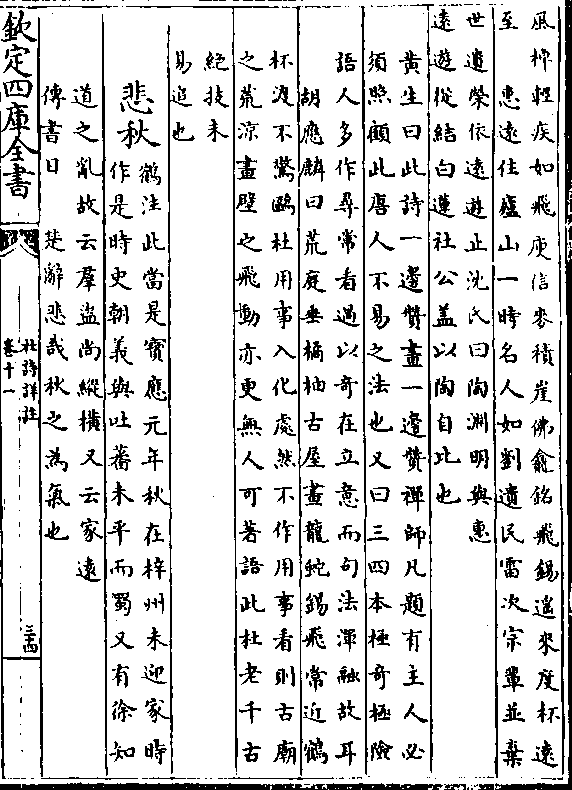 風檝輕疾如飛庾信麥積崖佛龕銘飛錫遥來度杯遠
至 惠遠住廬山一時名人如劉遺民雷次宗輩並棄
世遺榮依遠遊止沈氏曰陶淵明與惠
遠遊從結白蓮社公盖以陶自比也
黄生曰此詩一邊賛畫一邊賛禪師凡題有主人必
須照顧此唐人不易之法也又曰三四本極奇極險
語人多作尋常看過以奇在立意而句法渾融故耳
胡應麟曰荒庭垂橘柚古屋畫龍蛇錫飛常近鶴
杯渡不驚鷗杜用事入化處然不作用事看則古廟
之荒凉畫壁之飛動亦更無人可著語此杜老千古
絶技未
易追也
悲秋
鶴注此當是寶應元年秋在梓州未迎家時
作是時史朝義與吐蕃未平而蜀又有徐知
道之亂故云羣盗尚縱横又云家遠
傳書日 楚辭悲哉秋之為氣也
欽定四庫全書
杜詩詳註
卷十一
三四